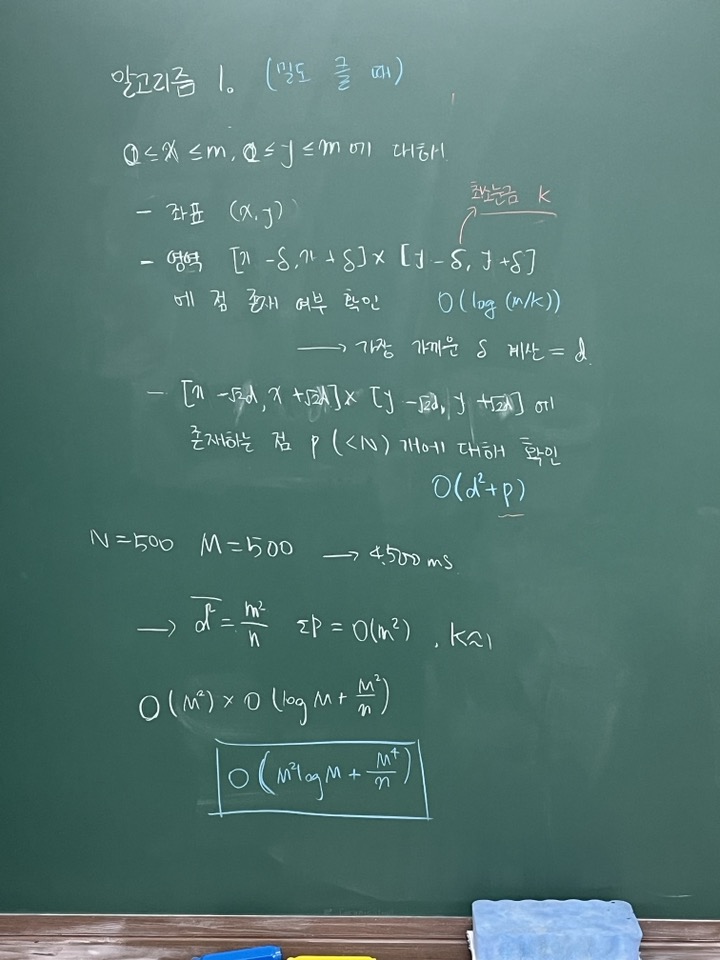 알고리즘 1. (밀도 클 때)
0≤x≤m, 0≤y≤m에 대해
- 좌표 (x, y)
최소눈금 k
- 영역 [x-δ, x+δ]×[y-δ, y+δ]
에 점 존재 여부 확인 O(log(m/k))
→ 가장 가까운 δ 계산 = d
- [x-√2d, x+√2d]×[y-√2d, y+√2d]에
존재하는 점 p(<N)개에 대해 확인
O(d²+p)
N=500 M=500 → 4500ms
→ d̅²̅ = m²/n Σp = O(m²), k≈1
O(M²)×O(log M + M²/n)
O(M²log M + M⁴/n)